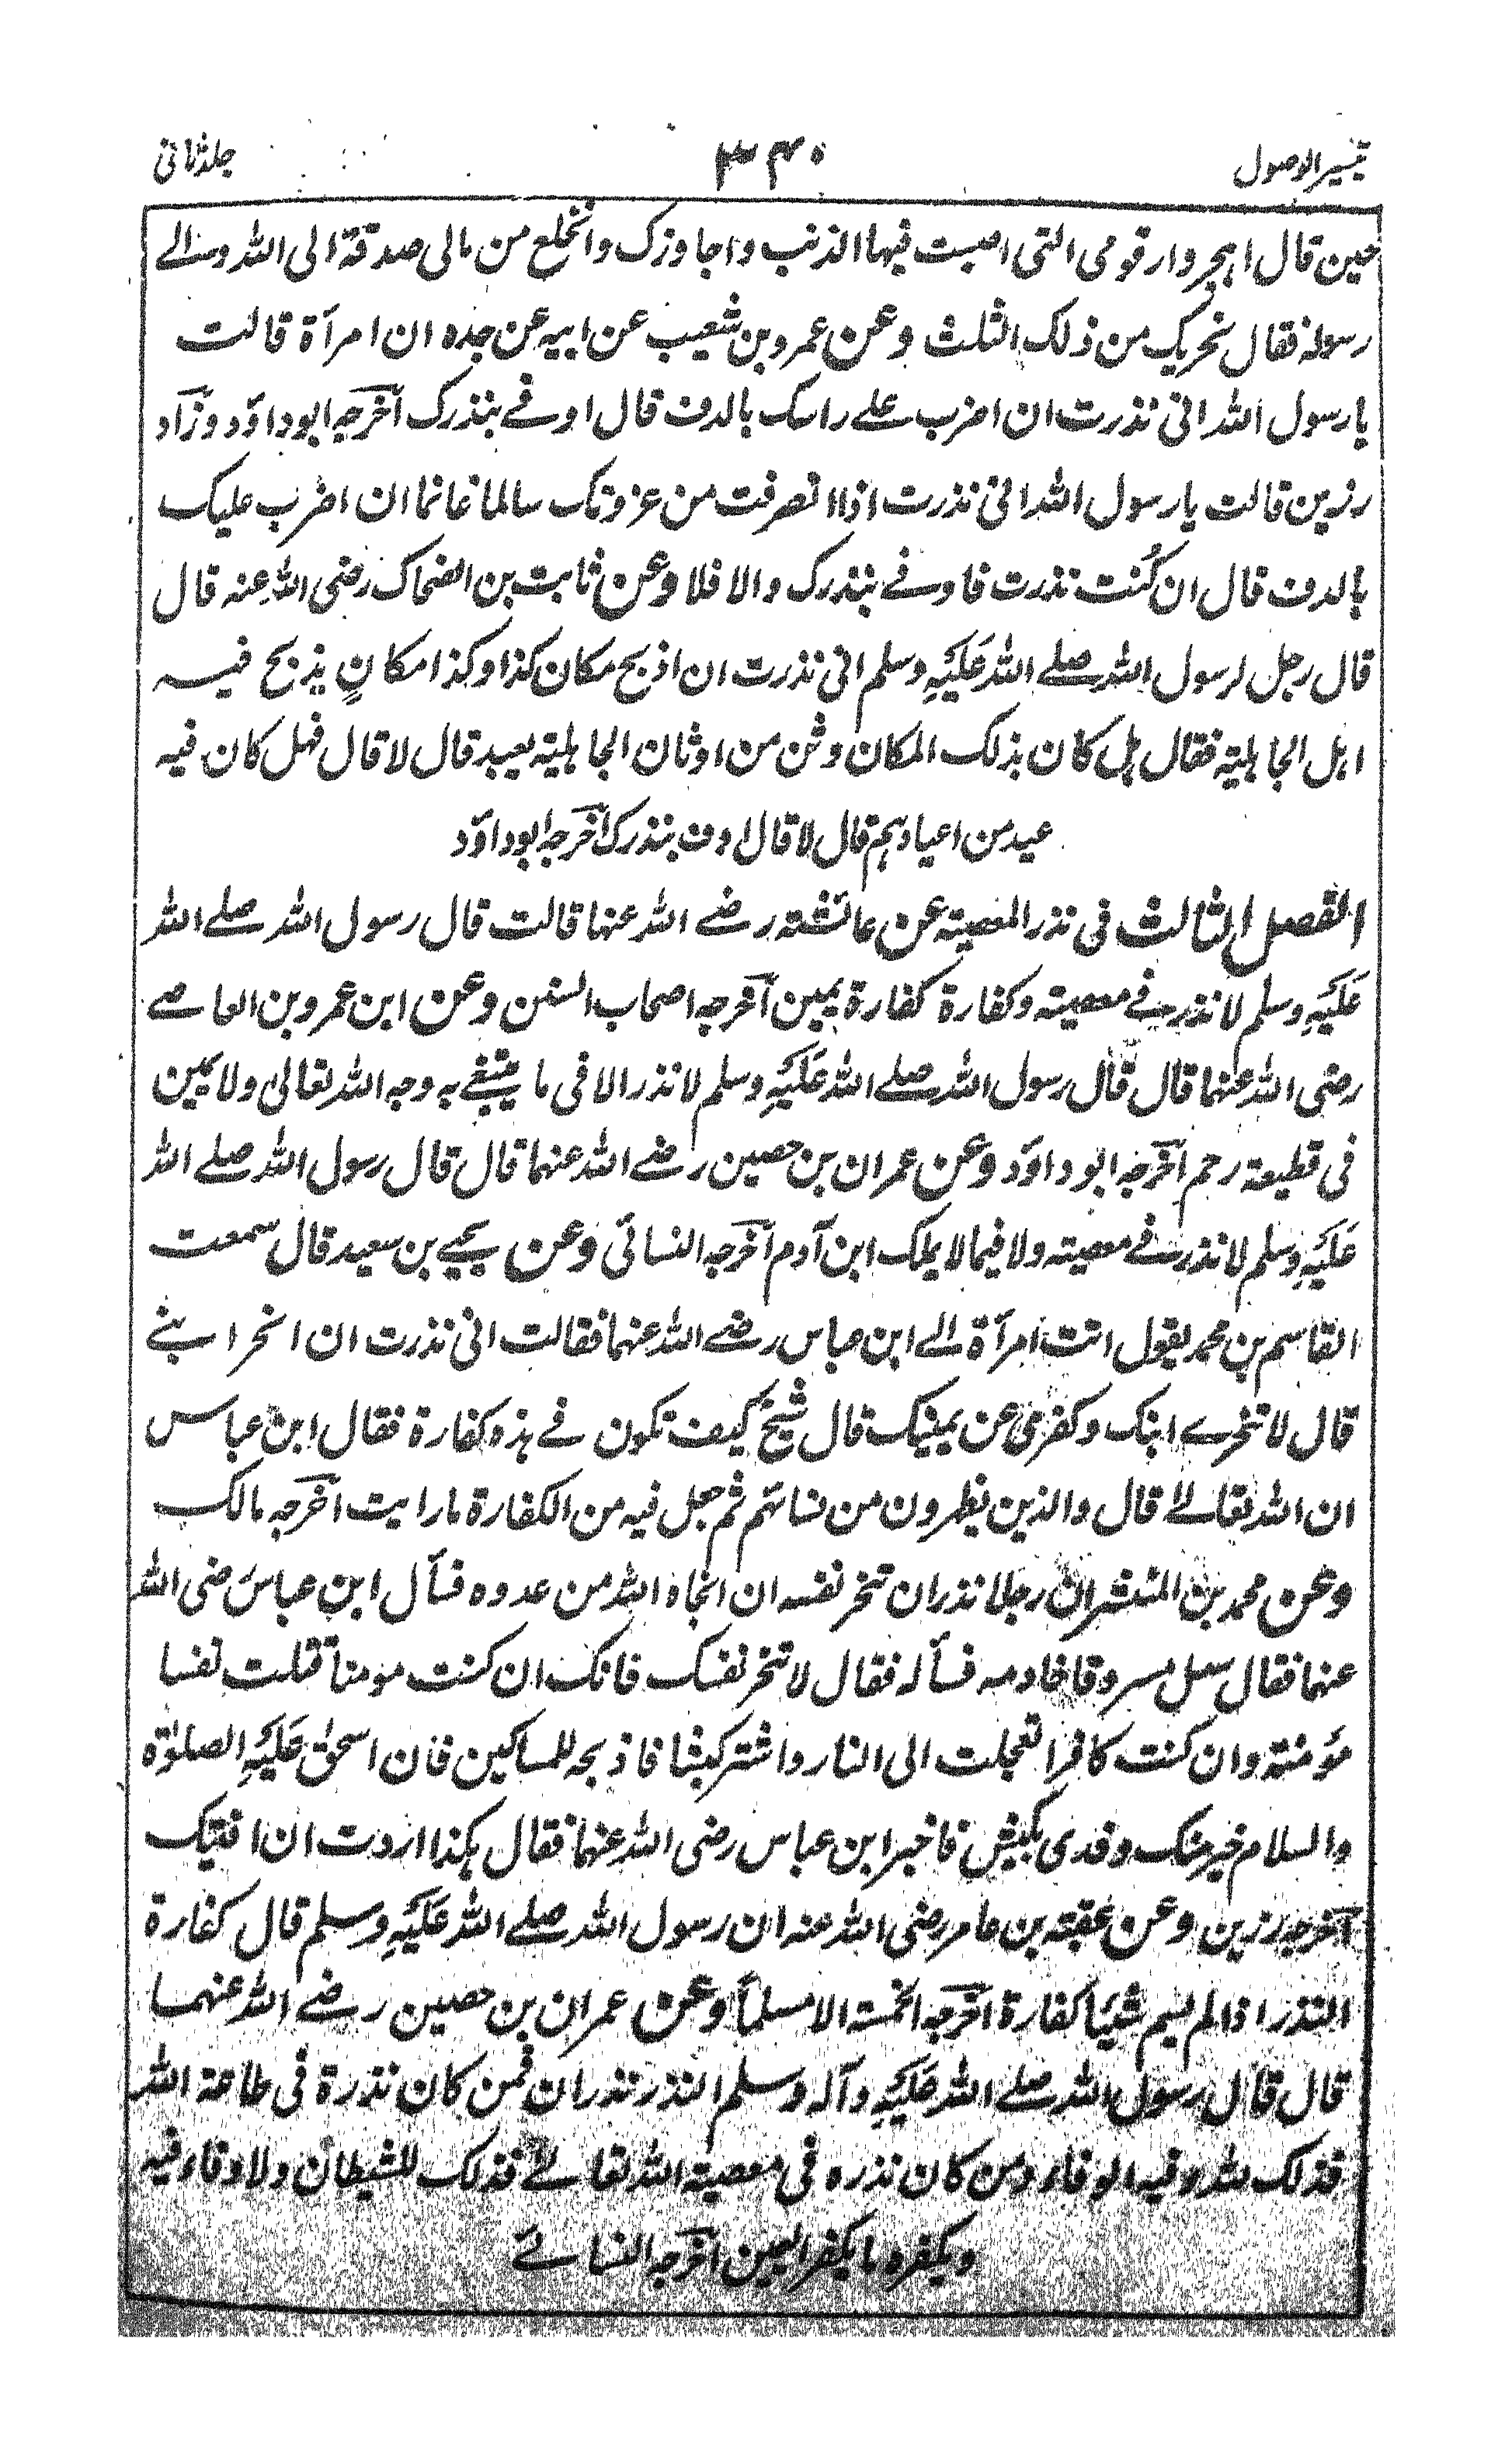 تيسير الوصول ۳۴۰ جلد ثانی
حين قال اهجر دار قومی التی اصبت فيها الذنب واجاورك وانخلع من مالی صدقة الی الله والے
رسوله فقال يجزيك من ذلك الثلث وعن عمرو بن شعيب عن ابيه عن جده ان امرأة قالت
يا رسول الله انی نذرت ان اضرب علے راسك بالدف قال اوفے بنذرك أخرجه ابوداوٓد وزاد
رزين قالت يا رسول الله انی نذرت اذا انصرفت من غزوتك سالما غانما ان اضرب عليك
بالدف قال ان كُنت نذرت فاوفے بنذرك والا فلا وعن ثابت بن الضحاك رضی الله عنه قال
قال رجل لرسول الله صلے الله عَلَيْهِ وسلم انی نذرت ان اذبح مكان كذا وكذا مكانٍ يذبح فيه
اهل الجاهلية فقال هل كان بذلك المكان وثن من اوثان الجاهلية يعبد قال لا قال فهل كان فيه
عيد من اعيادهم قال لا قال اوف بنذرك أخرجه ابوداوٓد
الفصل الثالث فی نذر المعصية عن عائشة رضے الله عنها قالت قال رسول الله صلے الله
عَلَيْهِ وسلم لا نذر فے معصية وكفارة كفارة يمين أخرجه اصحاب السنن وعن ابن عمرو بن العاصے
رضی الله عنهما قال قال رسول الله صلے الله عَلَيْهِ وسلم لا نذر الا فی ما يبتغے به وجه الله تعالیٰ ولا يمين
فی قطيعة رحم أخرجه ابوداوٓد وعن عمران بن حصين رضے الله عنهما قال قال رسول الله صلے الله
عَلَيْهِ وسلم لا نذر فے معصية ولا فيما لا يملك ابن آدم أخرجه النسائی وعن يحيے بن سعيد قال سمعت
القاسم بن محمد يقول اتت امرأة الے ابن عباس رضے الله عنهما فقالت انی نذرت ان انحر ابنے
قال لا تنحرے ابنك وكفری عن يمينك قال شيخٌ كيف تكون فے هذه كفارة فقال ابن عباس
ان الله تعالےٰ قال والذين يظهرون من نسائهم ثم جعل فيه من الكفارة ما رايت أخرجه مالك
وعن محمد بن المنتشر ان رجلا نذر ان تنحر نفسه ان انجاه الله من عدوه فسأل ابن عباس رضی الله
عنهما فقال سل مسروقا خادمه فسأله فقال لا تنحر نفسك فانك ان كنت مومنا قتلت نفسا
مؤمنة وان كنت كافرا تعجلت الی النار واشتر كبشا فاذبحه للمساكين فان اسحٰق عَلَيْهِ الصلوٰة
والسلام خير منك وفدی بكبش فاخبر ابن عباس رضی الله عنهما فقال هكذا اردت ان افتيك
أخرجه رزين وعن عقبة بن عامر رضی الله عنه ان رسول الله صلے الله عَلَيْهِ وسلم قال كفارة
النذر اذا لم يسم شيئا كفارة أخرجه الخمسة الا مسلماً وعن عمران بن حصين رضے الله عنهما
قال قال رسول الله صلے الله عَلَيْهِ وآله وسلم النذر نذران فمن كان نذرة فی طاعة الله
فذلك لله وفيه الوفاء ومن كان نذره فی معصية الله تعالےٰ فذلك للشيطان ولا وفاء فيه
ويكفره ما يكفر اليمين أخرجه النسائے